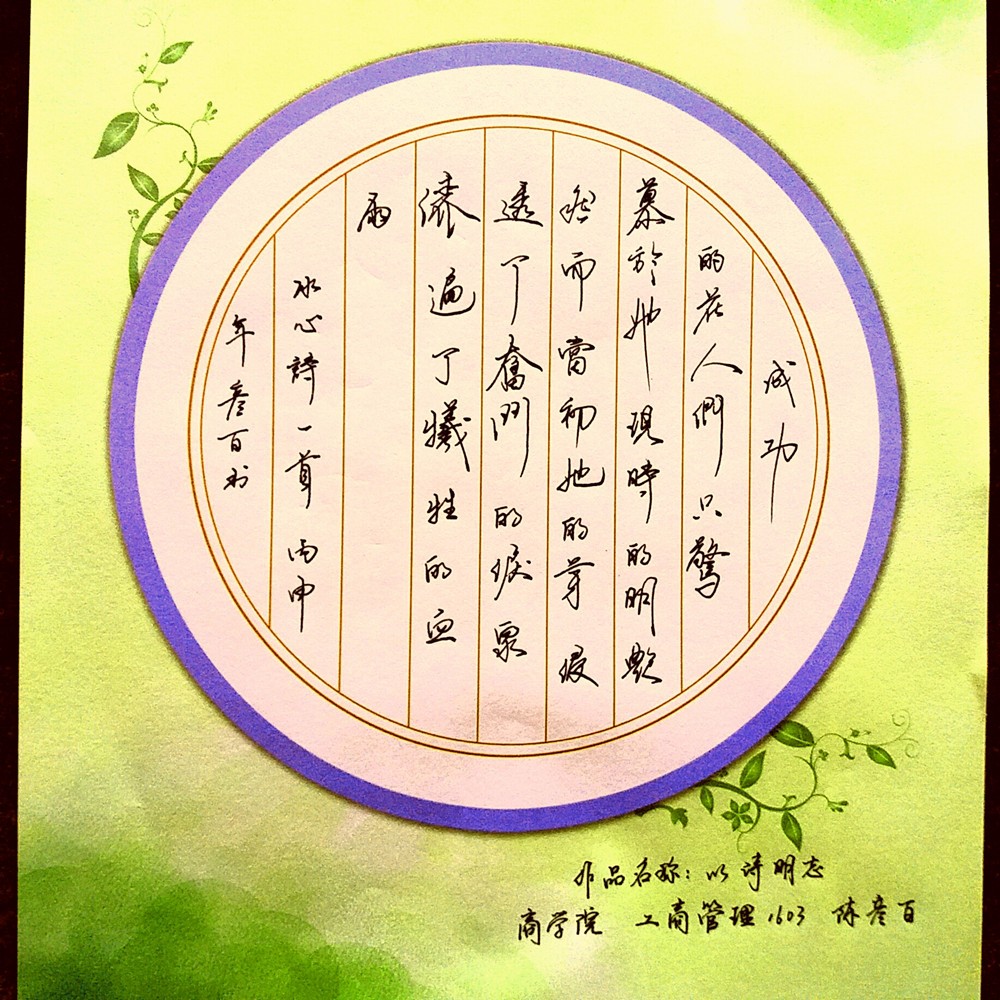 成功
的花人們只驚
慕於她現時的明艷
然而當初她的芽浸
透了奮鬥的淚泉
灑遍了犧牲的血
雨
冰心詩一首 丙申
年彦百书
作品名称：以诗明志
商学院 工商管理1603 陈彦百